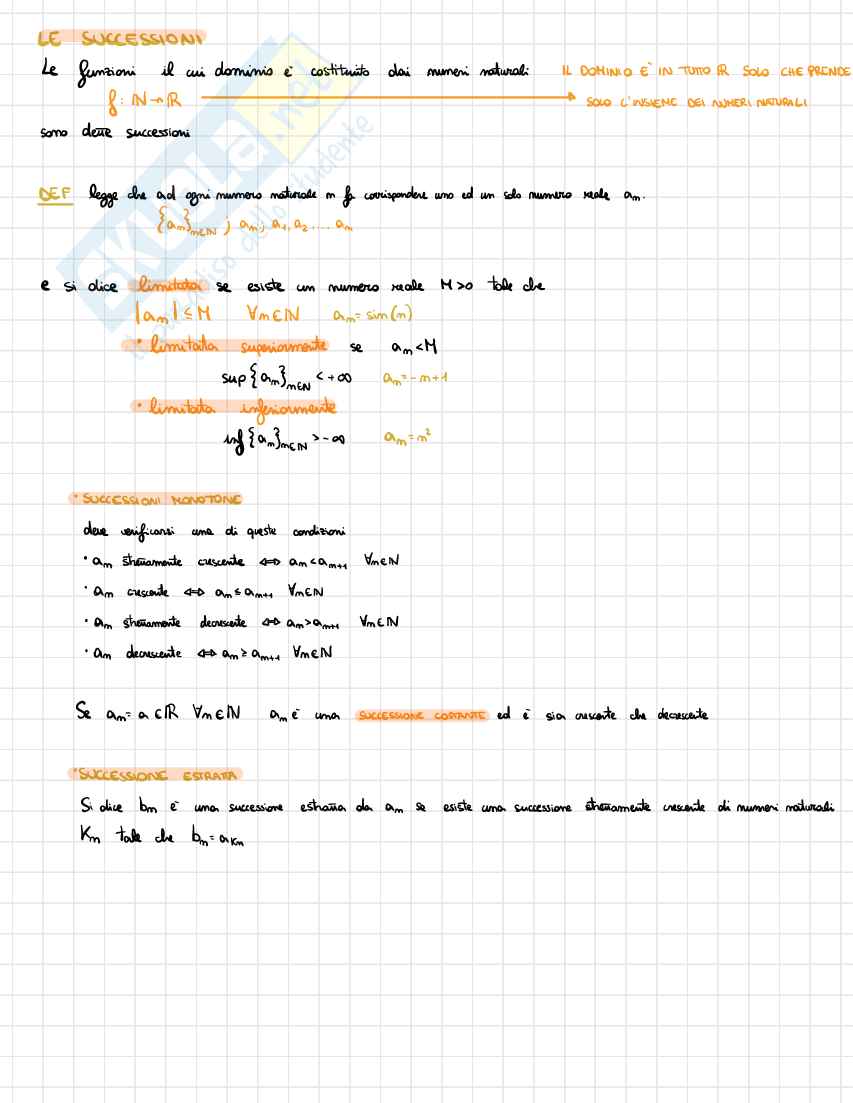 LE SUCCESSIONI
Le funzioni il cui dominio è costituito dai numeri naturali IL DOMINIO È IN TUTTO ℝ SOLO CHE PRENDE
f: ℕ→ℝ SOLO L'INSIEME DEI NUMERI NATURALI
sono dette successioni
DEF legge che ad ogni numero naturale n fa corrispondere uno ed un solo numero reale aₙ.
{aₙ}ₙ∈ℕ ; aₙ; a₁, a₂ .... aₙ
e si dice limitata se esiste un numero reale M>0 tale che
|aₙ| ≤ M ∀n∈ℕ aₙ = sin(n)
• limitata superiormente se aₙ<M
sup{aₙ}ₙ∈ℕ < +∞ aₙ=-n+1
• limitata inferiormente
inf{aₙ}ₙ∈ℕ > -∞ aₙ=n²
• SUCCESSIONI MONOTONE
deve verificarsi una di queste condizioni
• aₙ strettamente crescente ⇔ aₙ<aₙ₊₁ ∀n∈ℕ
• aₙ crescente ⇔ aₙ≤aₙ₊₁ ∀n∈ℕ
• aₙ strettamente decrescente ⇔ aₙ>aₙ₊₁ ∀n∈ℕ
• aₙ decrescente ⇔ aₙ≥aₙ₊₁ ∀n∈ℕ
Se aₙ=a∈ℝ ∀n∈ℕ aₙ è una SUCCESSIONE COSTANTE ed è sia crescente che decrescente
• SUCCESSIONE ESTRATTA
Si dice bₙ è una successione estratta da aₙ se esiste una successione strettamente crescente di numeri naturali
Kₙ tale che bₙ=a_Kₙ
SKUOLA.net
il paradiso dello studente